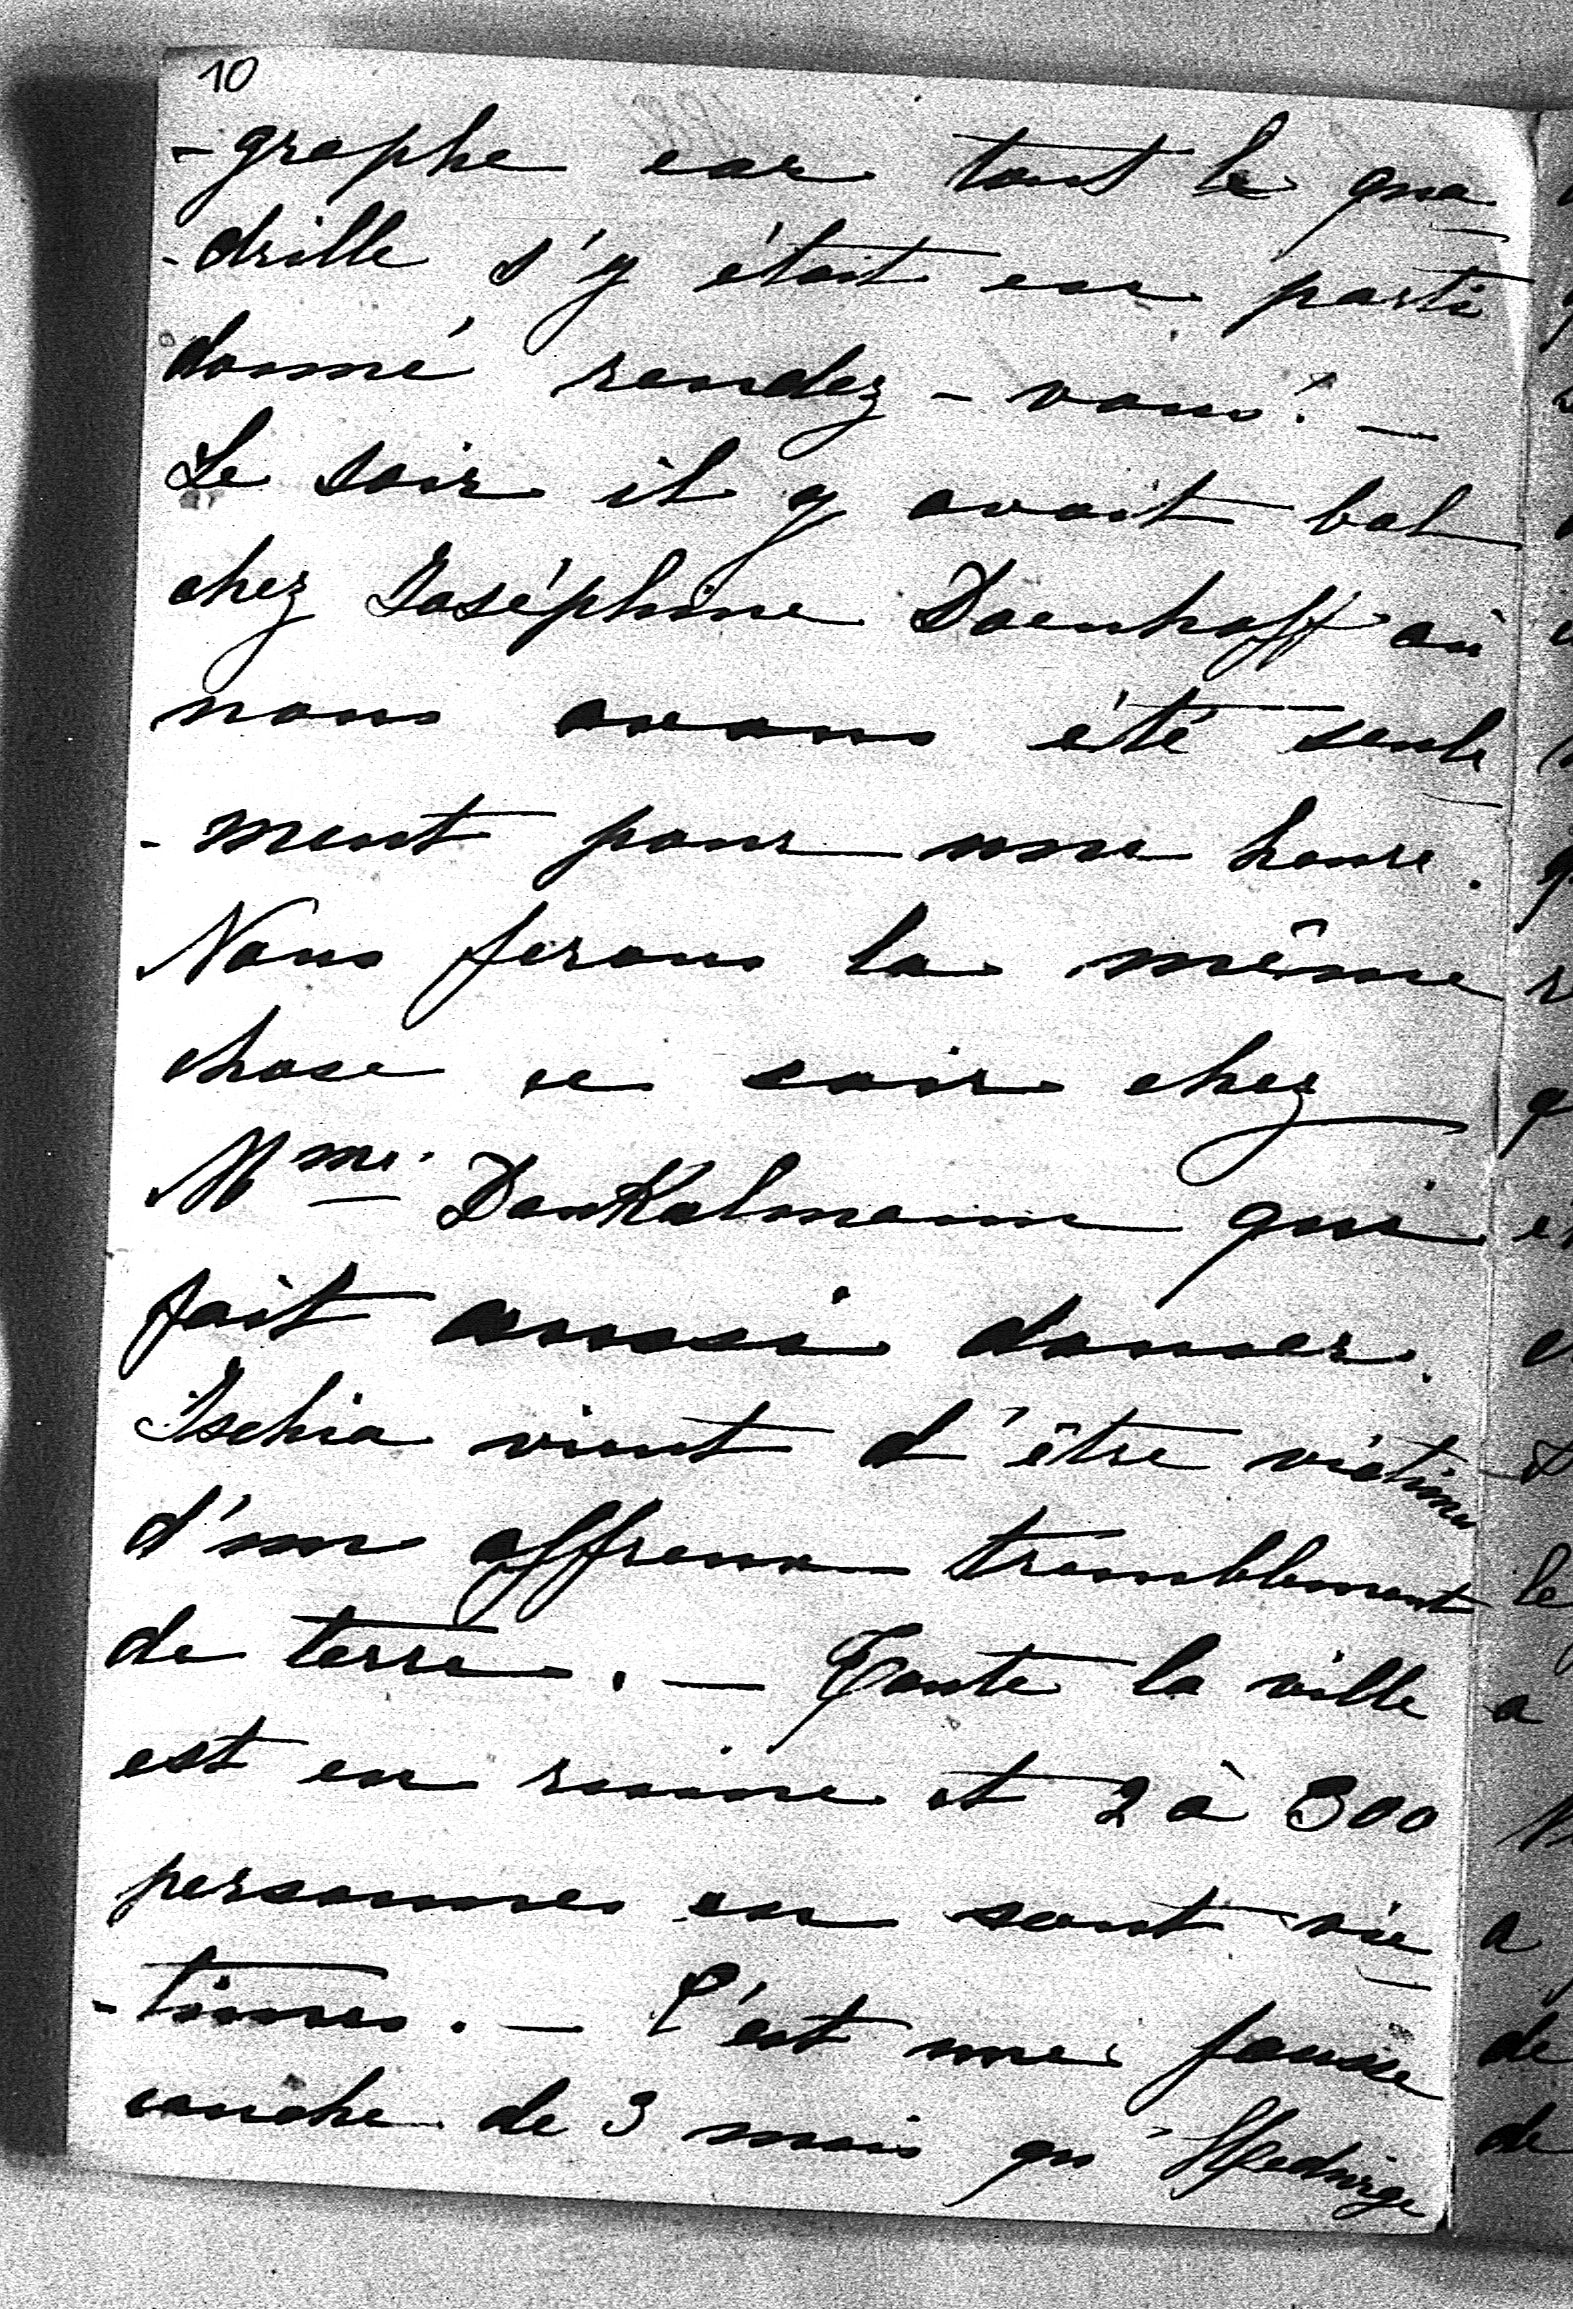 10
-graphe car tout le qua
-drille s'y était en parti
donné rendez-vous. —
Le soir il y avait bal
chez Joséphine Doenhoff où
nous avons été seule
-ment pour une heure.
Nous ferons la même
chose ce soir chez
Mme. Dankelmann qui
fait aussi danser.
Ischia vient d'être victime
d'un affreux tremblement
de terre. — Toute la ville
est en ruine et 2 à 300
personnes en sont vic
-times. — C'est une fausse
couche de 3 mois qu'Hedwige